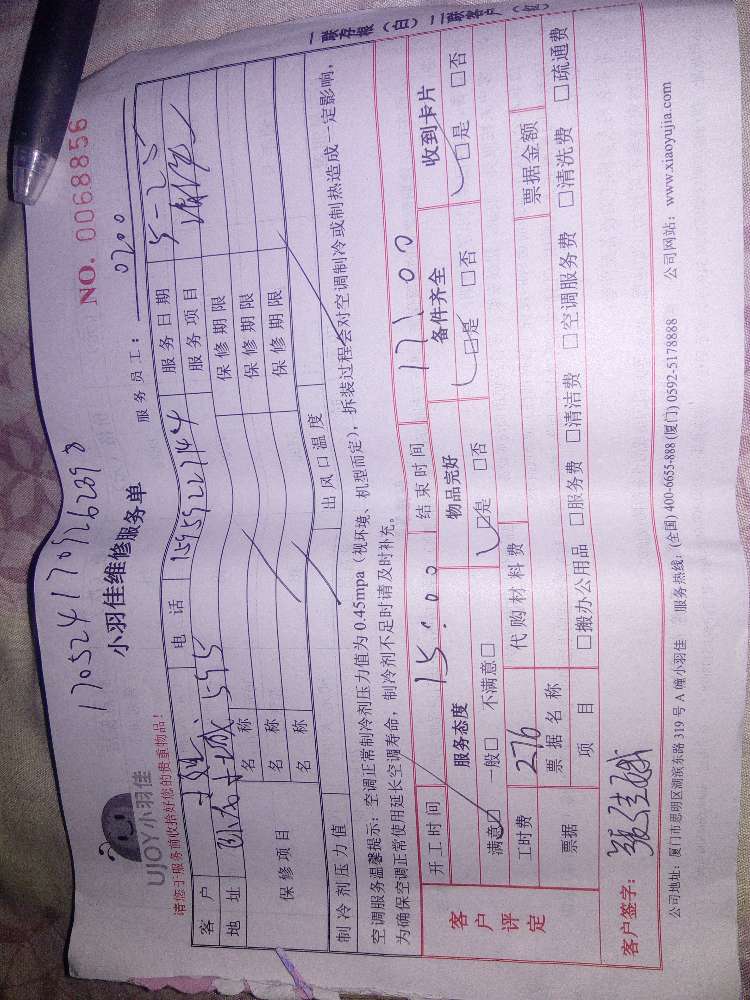 一联存根（白）二联客户（红）
1705241709262398
NO. 0068856
UJOY小羽佳
小羽佳维修服务单
请您于服务前收拾好您的贵重物品！
服务员工： 0200
客户 电话 15959227144 服务日期 5-25
地址 595 服务项目
保修项目 名称 保修期限
名称 保修期限
名称 保修期限
制冷剂压力值 出风口温度
空调服务温馨提示：空调正常制冷剂压力值为 0.45mpa（视环境、机型而定），拆装过程会对空调制冷或制热造成一定影响，
为确保空调正常使用延长空调寿命，制冷剂不足时请及时补充。
客户评定 开工时间 15:00 结束时间 17:00
服务态度 物品完好 备件齐全 收到卡片
满意□ 一般□ 不满意□ □是 □否 □是 □否 □是 □否
工时费 276 代购材料费
票据 票据名称 票据金额
项目 □搬办公用品 □服务费 □清洁费 □空调服务费 □清洗费 □疏通费
客户签字：
公司地址：厦门市思明区湖滨东路 319 号 A 幢小羽佳 服务热线：(全国) 400-6655-888 (厦门) 0592-5178888 公司网站：www.xiaoyujia.com